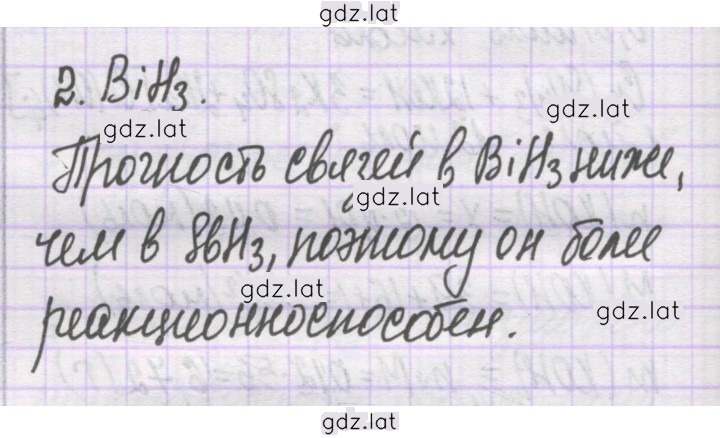 gdz.lat
2. BiH3.
gdz.lat
gdz.lat
Прочность связей в BiH3 ниже,
gdz.lat
чем в SbH3, поэтому он более
gdz.lat
gdz.lat
реакционноспособен.
gdz.lat